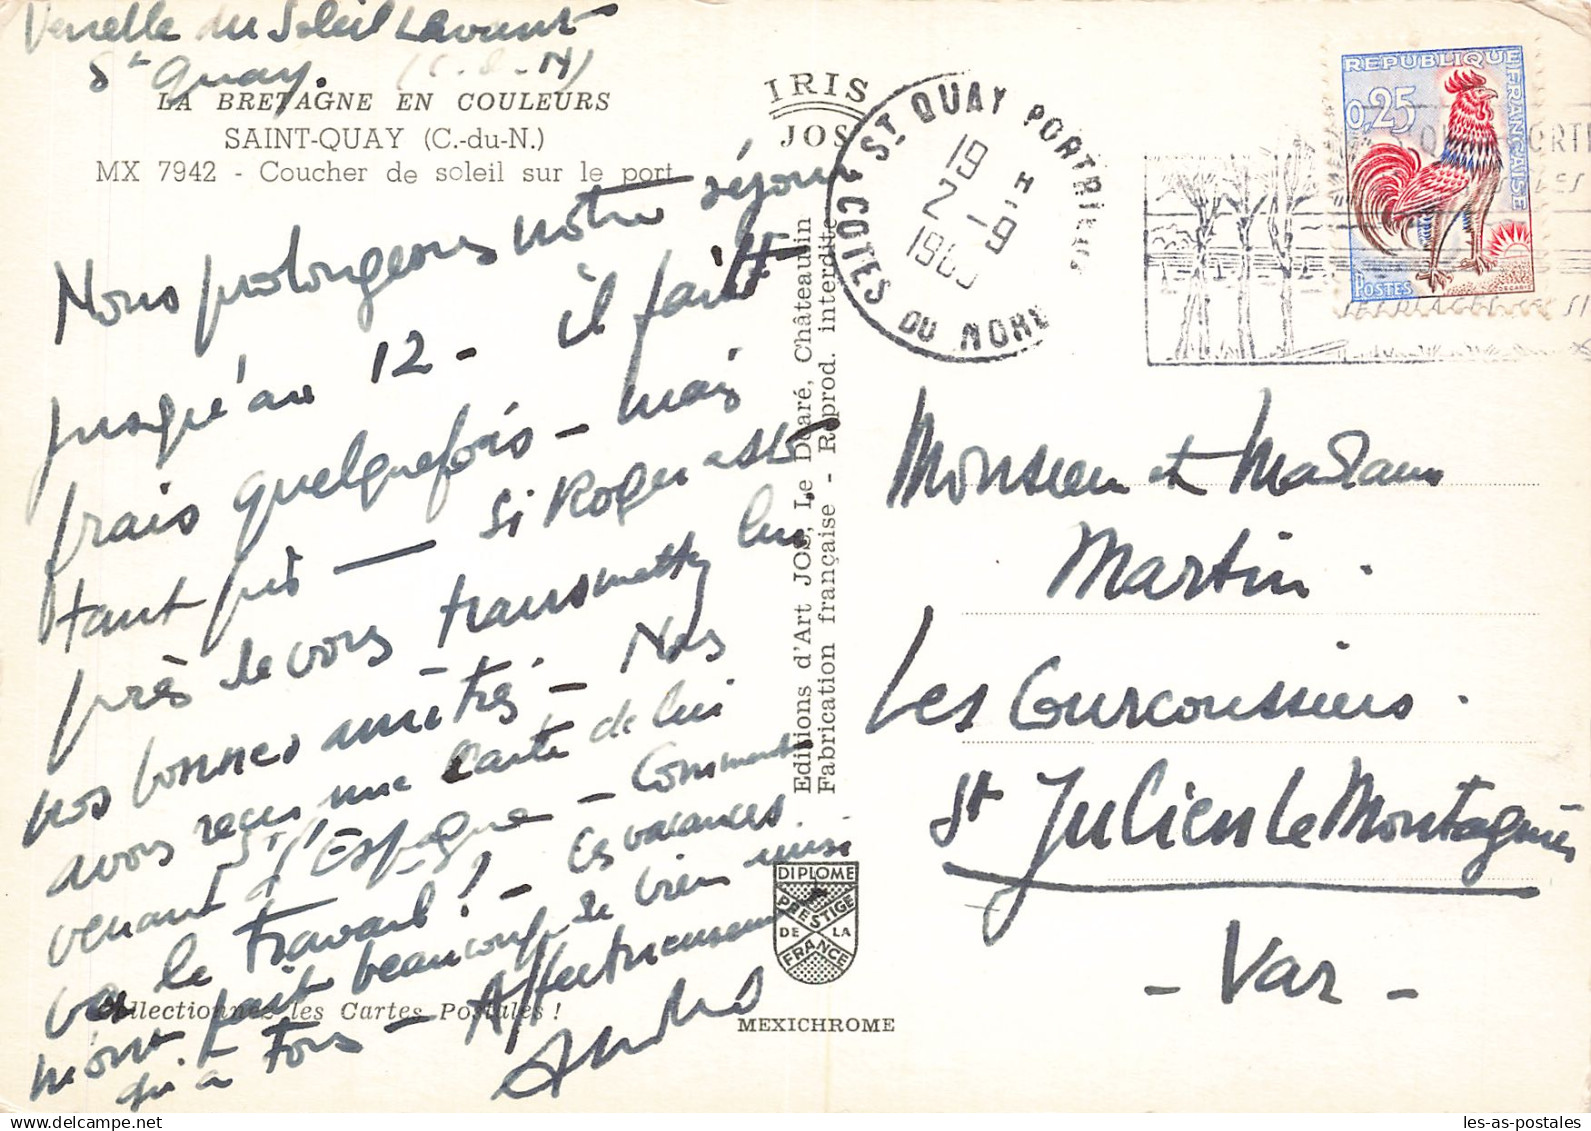 Venelle du Soleil Levant
St Quay. (C.-d.-N)
LA BRETAGNE EN COULEURS
SAINT-QUAY (C.-du-N.)
MX 7942 - Coucher de soleil sur le port
Nous prolongeons notre séjour
jusqu'au 12 - il fait
frais quelquefois - mais
tant pis — Si Roger est
près de vous transmettez lui
nos bonnes amitiés - Nous
avons reçu une carte de lui
venant d'Espagne - Comment
va le travail! - Ces vacances
m'ont fait beaucoup de bien ainsi
qu'à tous - Affectueusement
Collectionnez les Cartes Postales !
IRIS
JOS
Editions d'Art JOS, Le Doaré, Châteaulin
Fabrication française - Reprod. interdite
DIPLOME
PRESTIGE
DE LA
FRANCE
MEXICHROME
ST QUAY PORTRIEUX
19 H
2 - 9
196
COTES DU NORD
REPUBLIQUE FRANÇAISE
0,25
POSTES
Monsieur et Madame
Martin.
Les Courcoussiers.
St Julien Le Montagnier
- Var -
les-as-postales